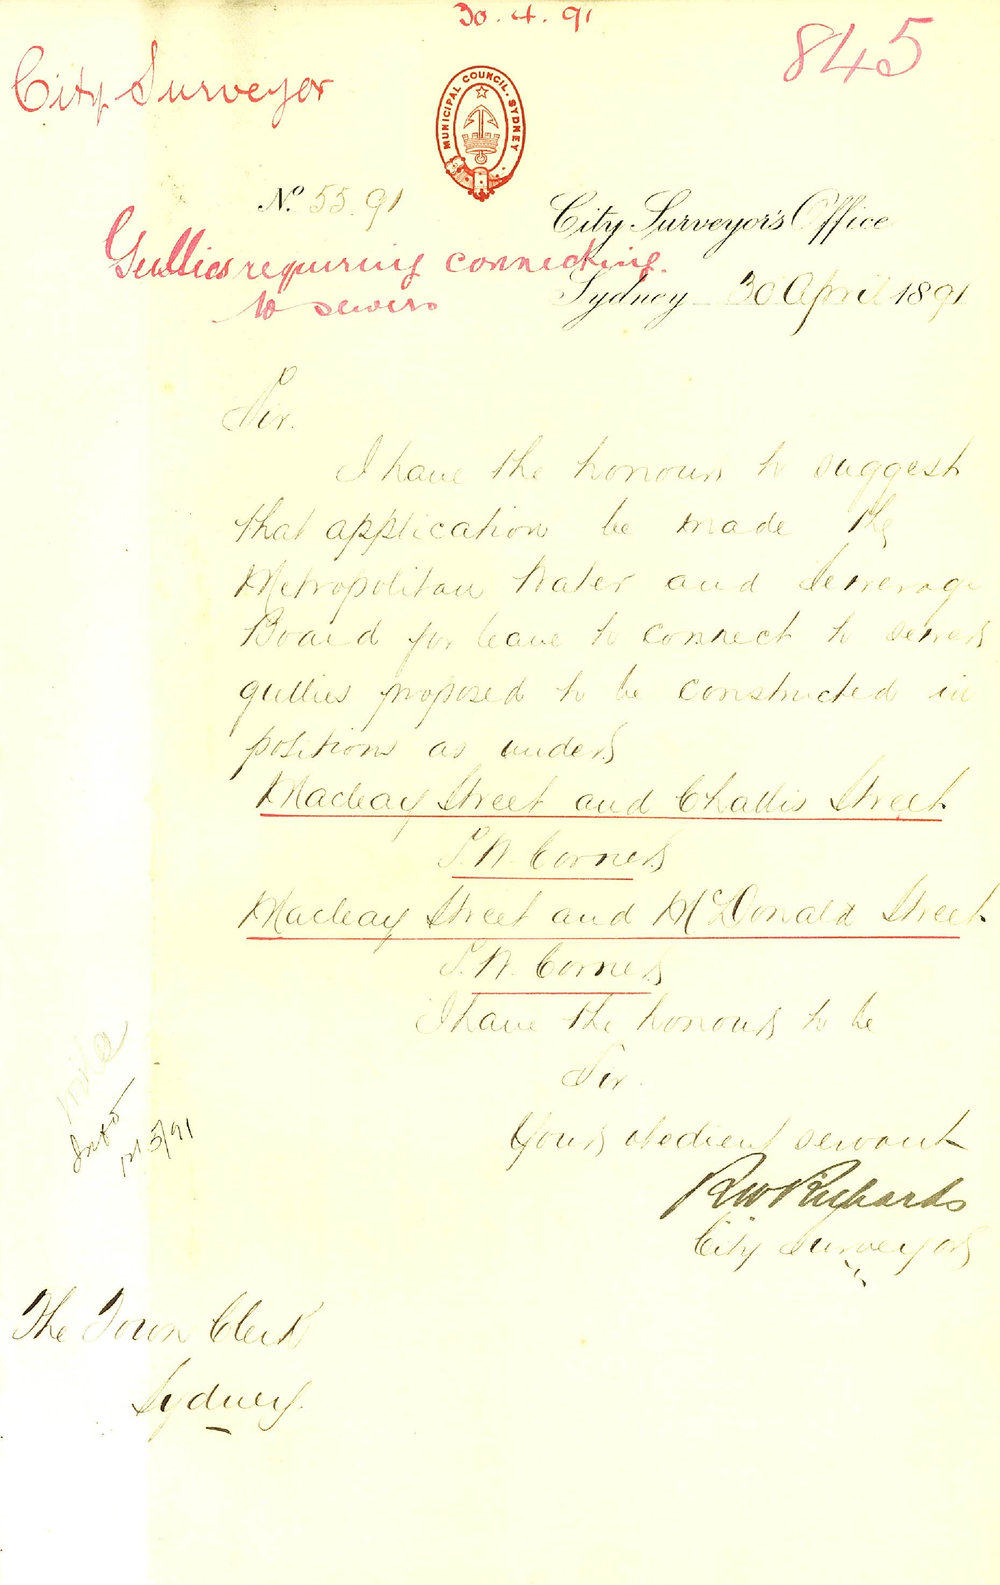 30.4.91
845
City Surveyor
MUNICIPAL COUNCIL. SYDNEY
No. 55.91
City Surveyor's Office
Gullies requiring connecting
to sewers
Sydney 30 April 1891
Sir.
I have the honour to suggest
that application be made the
Metropolitan Water and Sewerage
Board for leave to connect to sewers
gullies proposed to be constructed in
positions as under
Macleay Street and Challis Street
S.W. Corner
Macleay Street and McDonald Street
S.W. Corner
I have the honour to be
Sir.
Your obedient servant
RWRichards
City Surveyor
5/91
The Town Clerk
Sydney.